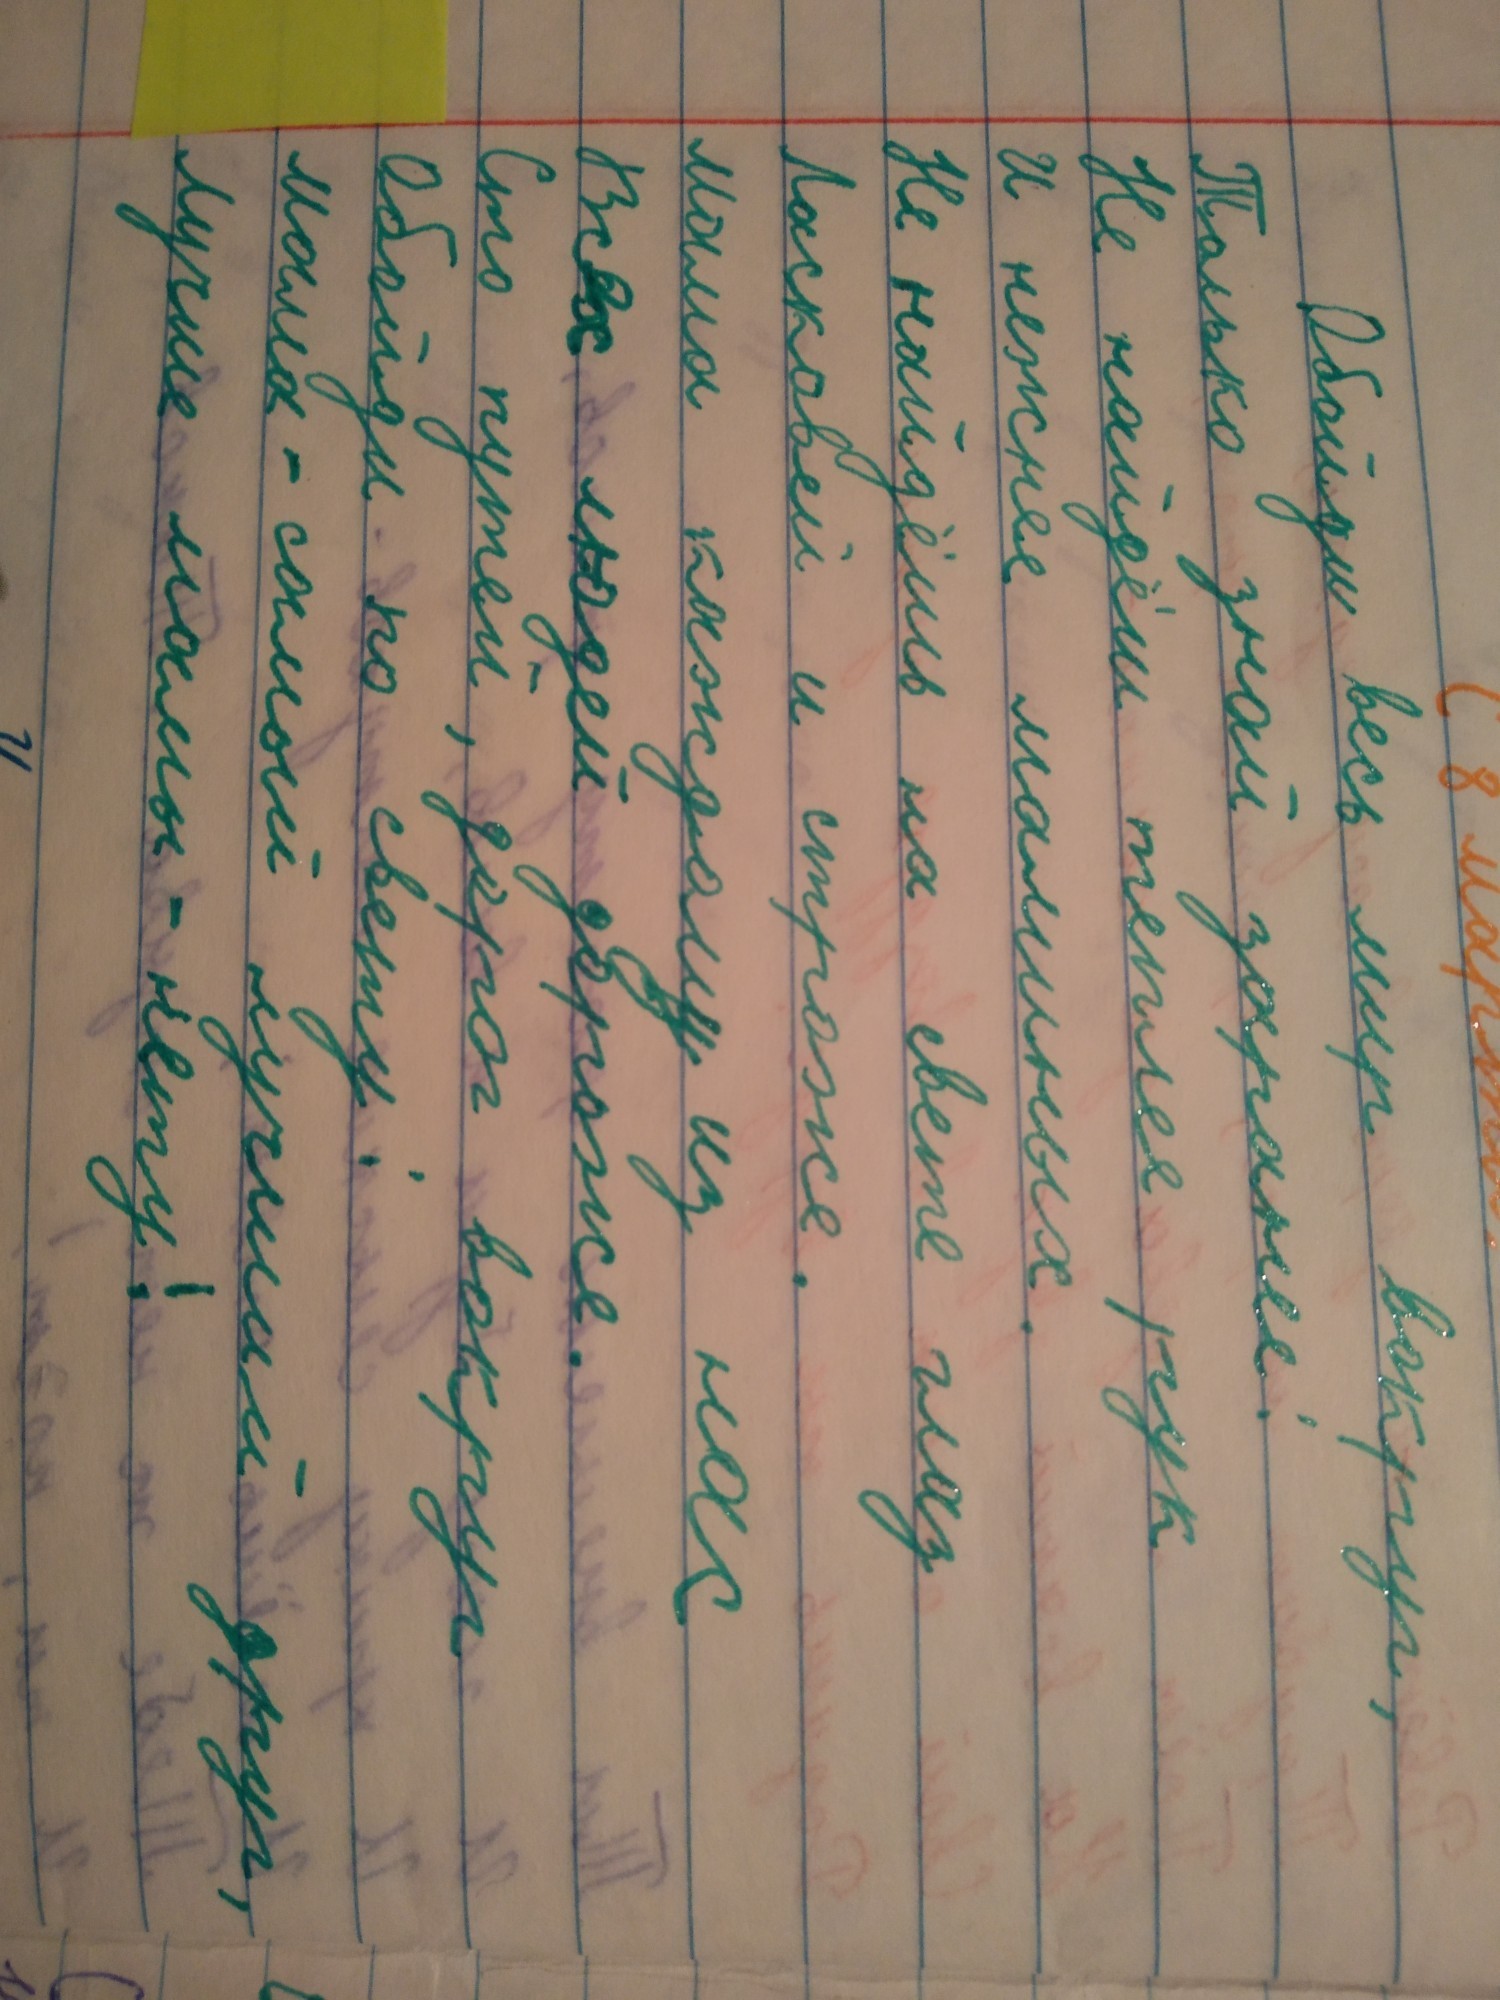 С 8 марта.
Обойди весь мир вокруг,
Только знай заранее:
Не найдёшь теплее рук
И нежнее маминых.
Не найдёшь на свете глаз
Ласковей и строже.
Мама каждому из нас
Всех людей дороже.
Сто путей, дорог вокруг
Обойди по свету:
Мама - самый лучший друг,
Лучше мамы - нету!